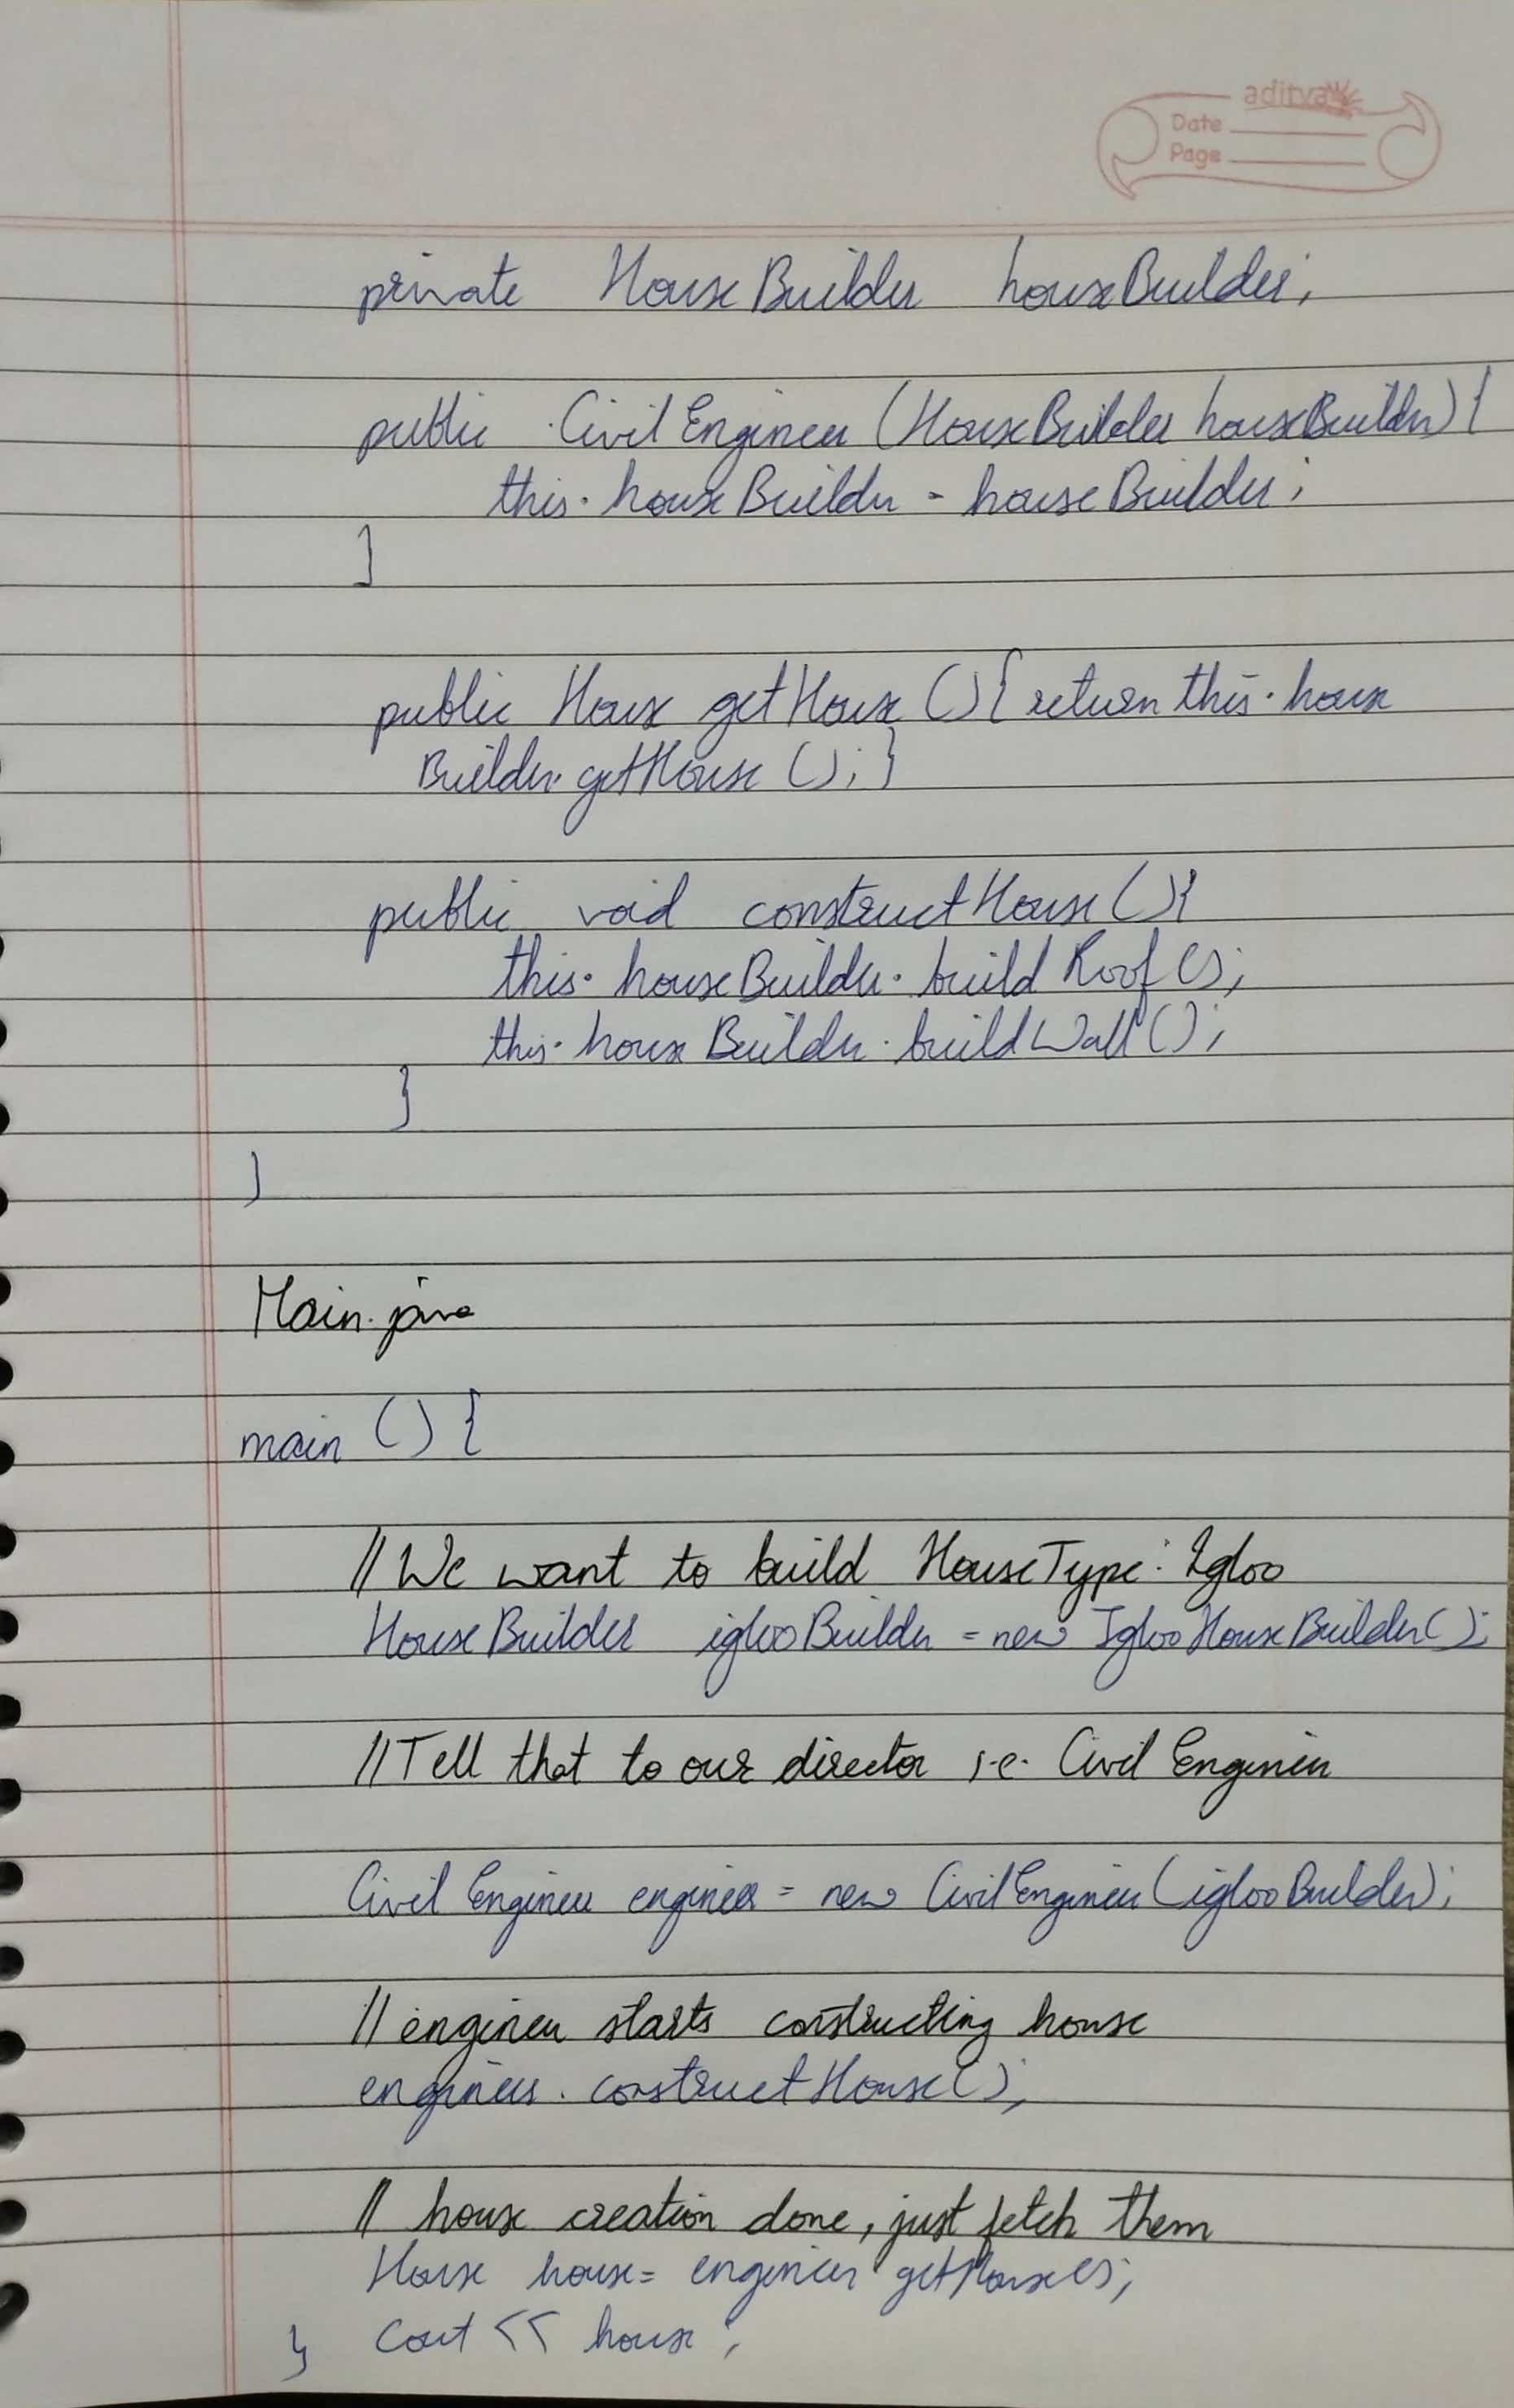 aditya
Date
Page
private HouseBuilder houseBuilder;
public CivilEngineer (HouseBuilder houseBuilder) {
this.houseBuilder = houseBuilder;
}
public House getHouse () { return this.house
Builder.getHouse (); }
public void constructHouse () {
this.houseBuilder.buildRoof ();
this.houseBuilder.buildWall ();
}
}
Main.java
main () {
//We want to build HouseType: Igloo
HouseBuilder iglooBuilder = new IglooHouseBuilder();
//Tell that to our director i.e. Civil Engineer
CivilEngineer engineer = new CivilEngineer (iglooBuilder);
//engineer starts constructing house
engineer.constructHouse();
// house creation done, just fetch them
House house = engineer.getHouse();
} cout << house;